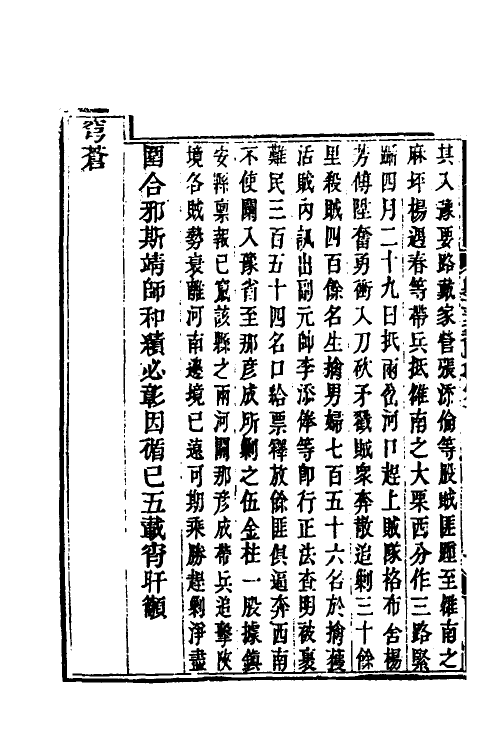 其入豫要路戴家營張添倫等股賊匪逕至雒南之
麻坪楊遇春等帶兵抵雒南之大栗西分作三路緊
躡四月二十九日抵兩岔河口趕上賊隊格布舍楊
芳傅陞奮勇衝入刀砍矛戳賊衆奔散追剿三十餘
里殺賊四百餘名生擒男婦七百五十六名於擒獲
活賊內訊出副元帥李添俸等卽行正法查明被裹
難民三百五十四名口給票釋放餘匪俱逼奔西南
不使闌入豫省至那彦成所剿之伍金柱一股據鎮
安縣禀報已竄該縣之兩河關那彦成帶兵追擊陜
境各賊勢衰離河南邊境已遠可期乘勝趕剿淨盡
圍合邪斯靖師和績必彰因循已五載宵旰籲
穹蒼